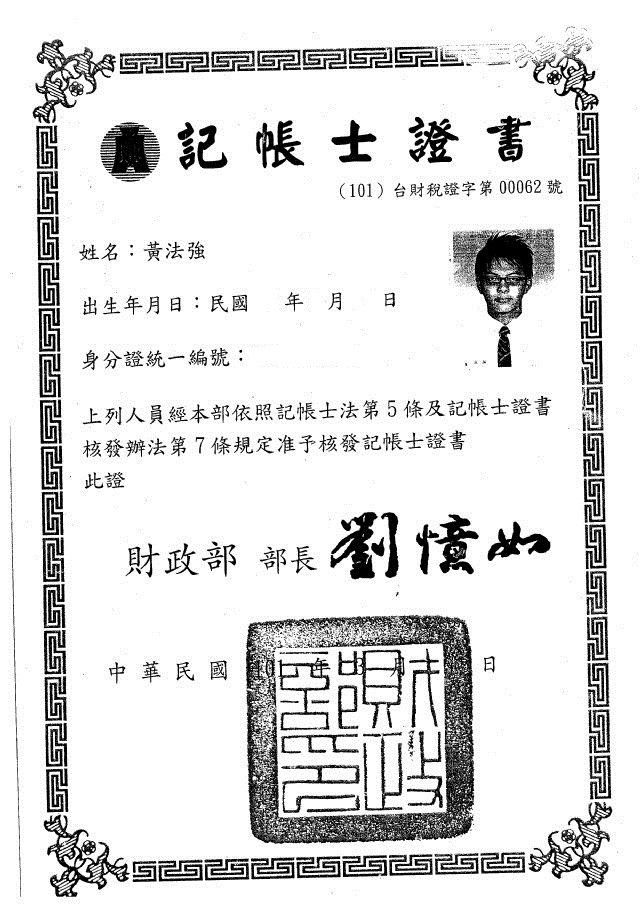 記帳士證書
（101）台財稅證字第 00062 號
姓名：黃法強
出生年月日：民國 年 月 日
身分證統一編號：
上列人員經本部依照記帳士法第 5 條及記帳士證書
核發辦法第 7 條規定准予核發記帳士證書
此證
財政部 部長 劉憶如
中華民國 101 年 3 月 日